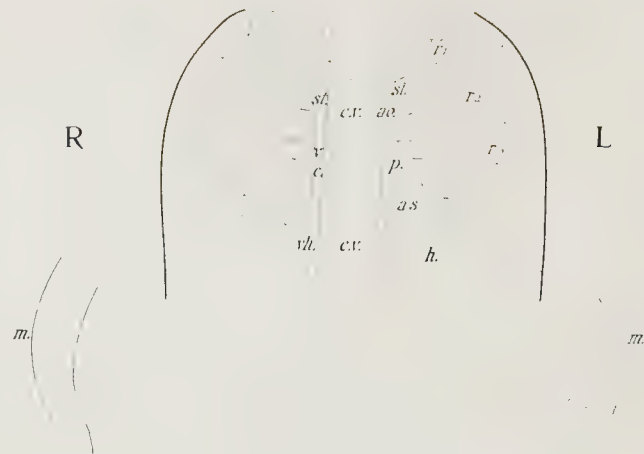 r₁
st. st. r₂
c.v. ao.
R L
v. r₃
c. p.
a.s
vh. c.v. h.
m. m.